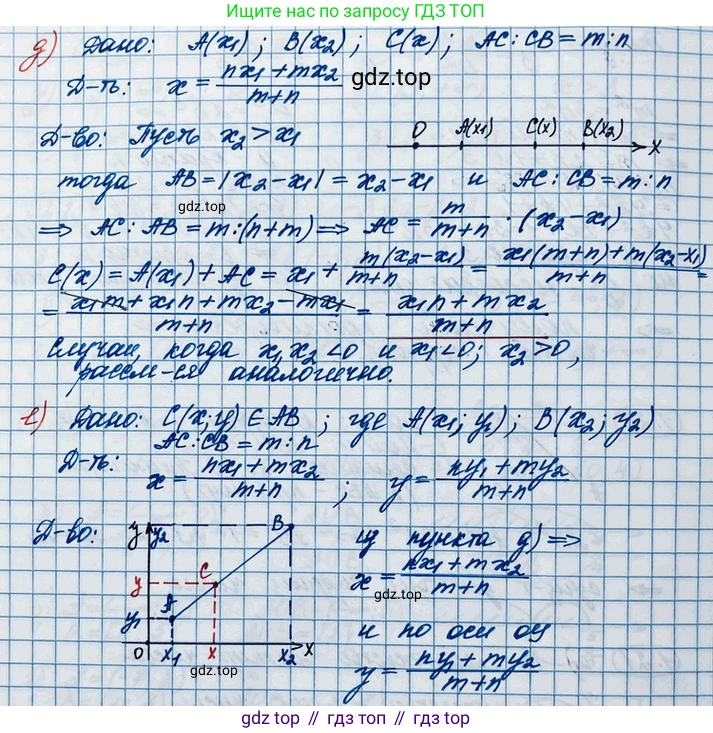 Ищите нас по запросу ГДЗ ТОП
д) Дано: A(x₁); B(x₂); C(x); AC:CB = m:n
Д-ть: x = (nx₁ + mx₂)/(m+n)
gdz.top
Д-во: Пусть x₂ > x₁
O A(x₁) C(x) B(x₂) x
тогда AB = |x₂ - x₁| = x₂ - x₁ и AC:CB = m:n
gdz.top
⇒ AC:AB = m:(n+m) ⇒ AC = m/(m+n) · (x₂ - x₁)
C(x) = A(x₁) + AC = x₁ + m(x₂-x₁)/(m+n) = (x₁(m+n) + m(x₂-x₁))/(m+n) =
= (x₁m + x₁n + mx₂ - mx₁)/(m+n) = (x₁n + mx₂)/(m+n)
Случаи, когда x₁, x₂ < 0 и x₁ < 0; x₂ > 0,
рассм-ся аналогично.
е) Дано: C(x; y) ∈ AB; где A(x₁; y₁); B(x₂; y₂)
AC:CB = m:n
Д-ть: x = (nx₁ + mx₂)/(m+n); y = (ny₁ + my₂)/(m+n)
Д-во:
y y₂ B
y C
y₁ A
O x₁ x x₂ x
gdz.top
из пункта д) ⇒
x = (nx₁ + mx₂)/(m+n)
gdz.top
и по оси oy
y = (ny₁ + my₂)/(m+n)
gdz.top // гдз топ // gdz.top // гдз топ // gdz.top